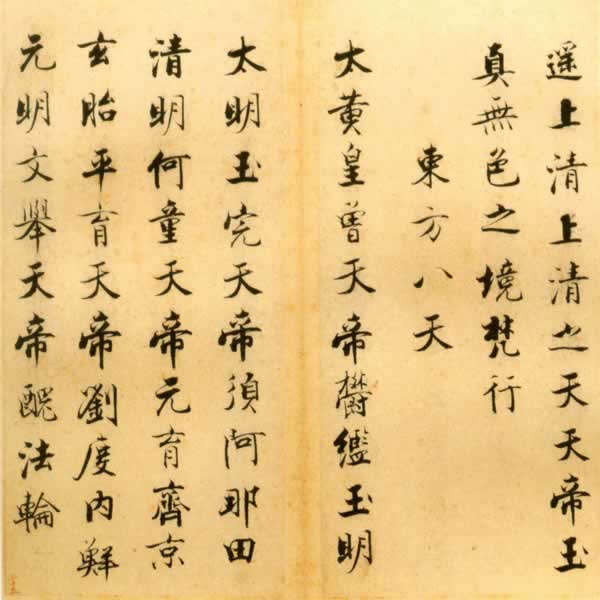 遥上清上清之天天帝玉
真無色之境梵行
東方八天
太黄皇曾天帝欝鑑玉明
太明玉完天帝須阿那田
清明何童天帝元育齊京
玄胎平育天帝劉度内鮮
元明文舉天帝醜法輪